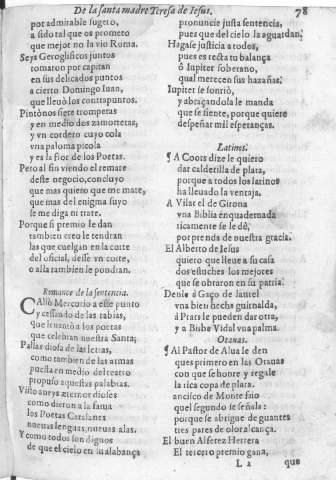 De la santa madre Teresa de Iesus. 78
por admirable sugeto,
a sido tal que os prometo
que mejor no la vio Roma.
Seys Geroglificos juntos
tomaron por capitan
en sus delicados puntos
a cierto Domingo Iuan,
que lleuò los contrapuntos.
Pintónos siete trompetas
y en medio dos
y vn cordero cuyo cola
vna paloma picola
y es la flor de los Poetas.
Pero al fin viendo el remate
deste negocio, concluyo
que mas quiero que me mate,
que mas del enigma suyo
se me diga ni trate.
Porque si premio le dan
tambien creo le tendran
las que cuelgan en la corte
del oficial, desse vn corte,
o alla tambien le pondran.
Romance de la sentencia.
CAllò Mercurio a este punto
y cessando de las rabias,
que leuantò a los poetas
que celebran nuestra Santa;
Pallas diosa de las letras,
como tambien de las armas
puesta en medio del teatro
propuso aquestas palabras.
Visto suyas eternos dioses
como dieron a la fama
los Poetas Catalanes
nueuas lenguas, nueuas alas.
Y como todos son dignos
de que el cielo en su alabança
pronuncie justa sentencia,
pues que del cielo la aguardan.
Hagase justicia a todos,
pues es recta tu balança
ô Iupiter soberano,
qual merecen sus hazañas.
Iupiter se sonriò,
y abraçandola le manda
que se siente, porque quiere
despeñar mil esperanças.
Latinos.
¶ A Coors dize le quiero
dar calderilla de plata,
porque a todos los latinos
ha lleuado la ventaja.
A Vilar el de Girona
vna Biblia enquadernada
ricamente se le dè,
por prenda de nuestra gracia.
El Alberto de Iesus
quiero que lleue a su casa
dos estuches los mejores
que se obraron en su patria.
Dense à Gaço de Iancel
vna bien hecha guirnalda,
à Prats le pueden dar otra,
y a Bisbe Vidal vna palma.
Otauas.
¶ Al Pastor de Alua le den
ques primero en las Otauas
con que se honre y regale
la rica copa de plata.
ancisco de Monte frio
quel segundo se señala:
porque se abrigue de guantes
tres pares de olor alcança.
El buen Alferez Herrera
El tercero premio gana,
L 2 que